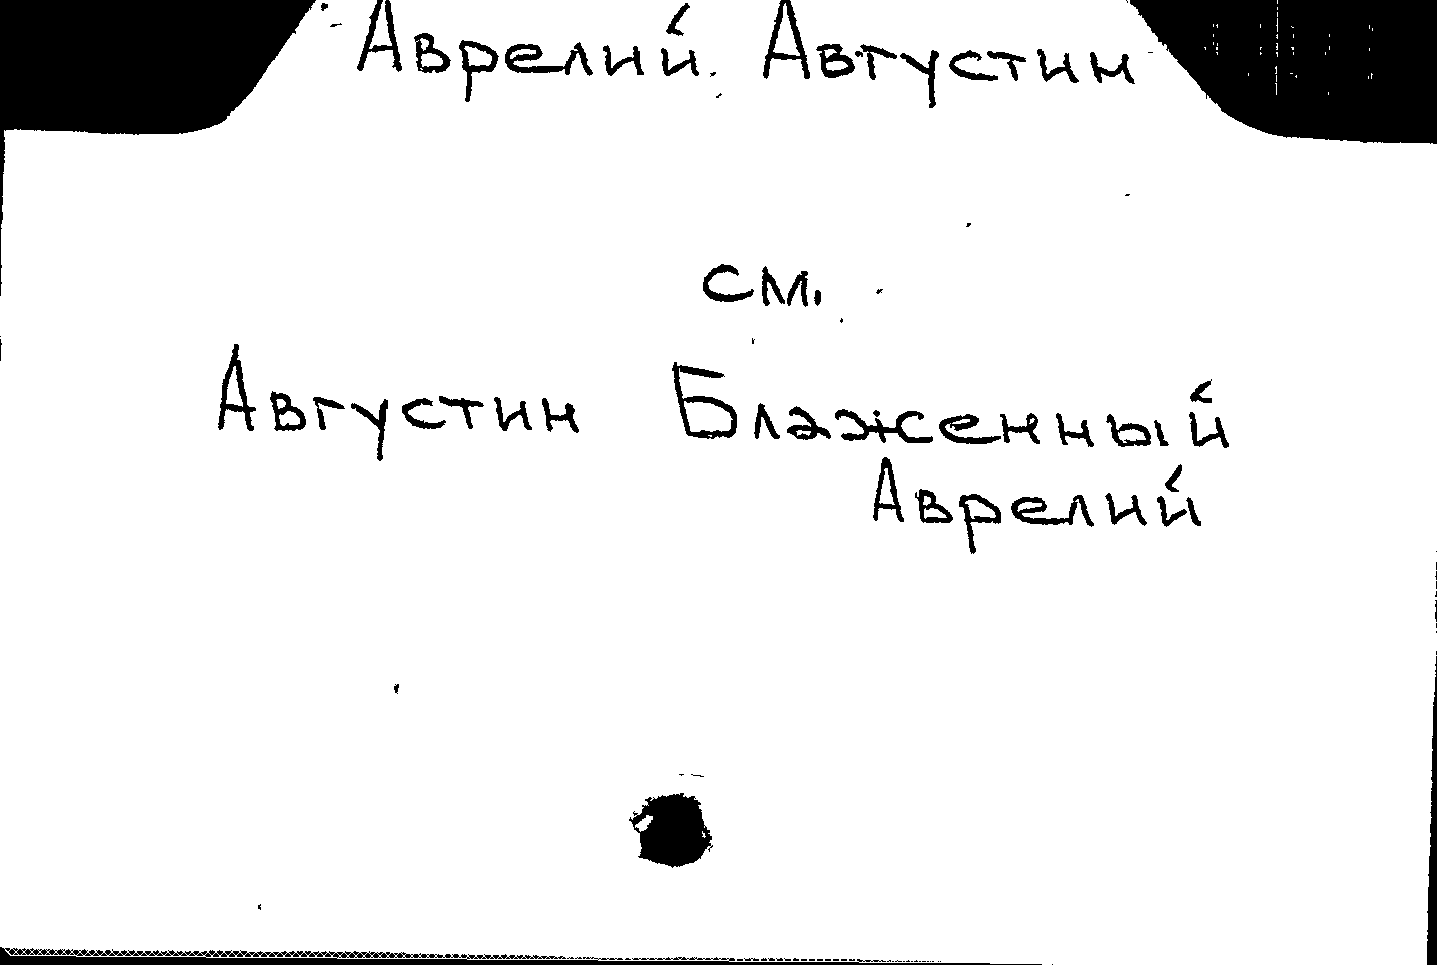 Аврелий Августин
см.
Августин Блаженный
Аврелий